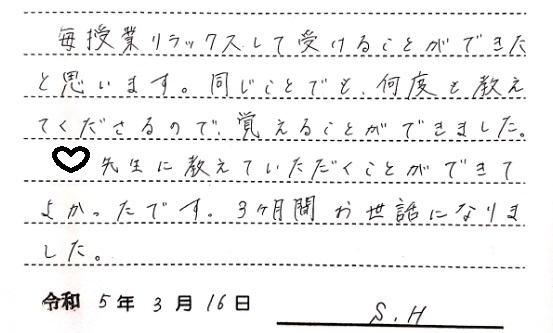 毎授業リラックスして受けることができた
と思います。同じことでも、何度も教え
てくださるので、覚えることができました。
♡先生に教えていただくことができて
よかったです。3ヶ月間お世話になりま
した。
令和 5年 3月 16日
S.H